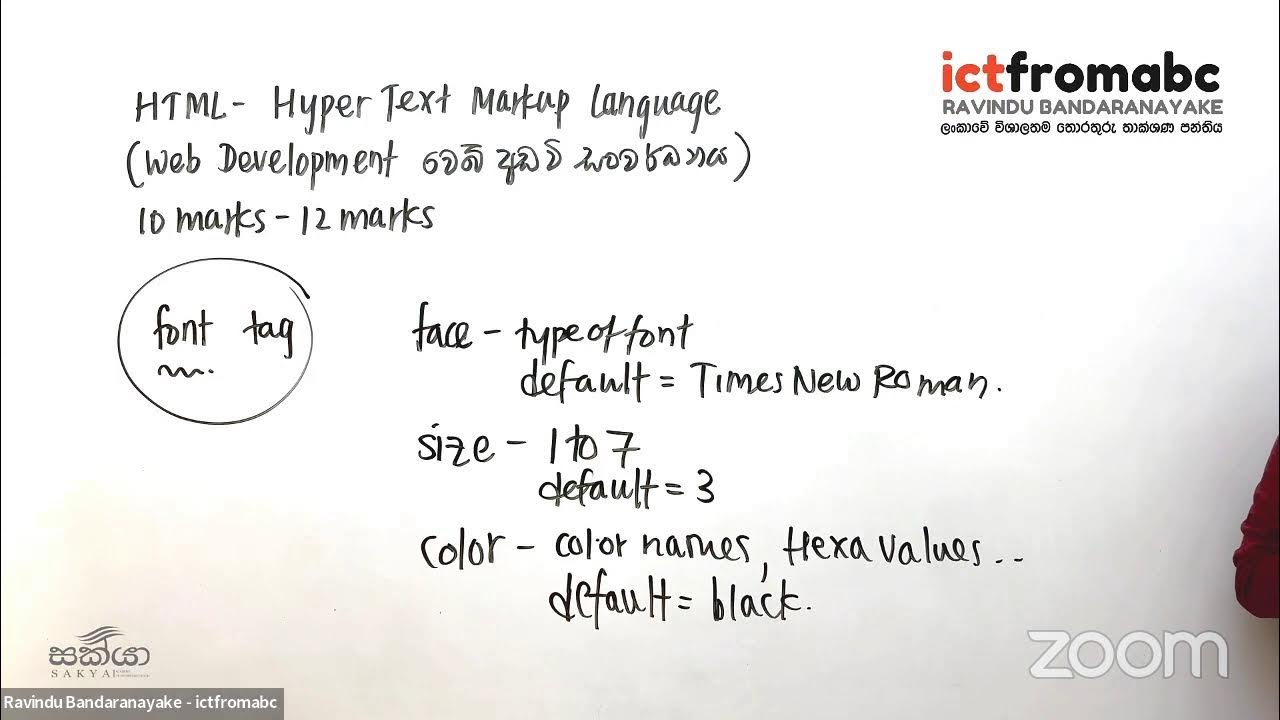 ictfromabc
RAVINDU BANDARANAYAKE
ලංකාවේ විශාලතම තොරතුරු තාක්ශණ පන්තිය
HTML - Hyper Text Markup Language
(Web Development වෙබ් අඩවි සංවර්ධනය)
10 marks - 12 marks
font tag
face - type of font
default = Times New Roman.
size - 1 to 7
default = 3
color - color names, Hexa values ..
default = black.
සක්යා
SAKYA
zoom
Ravindu Bandaranayake - ictfromabc